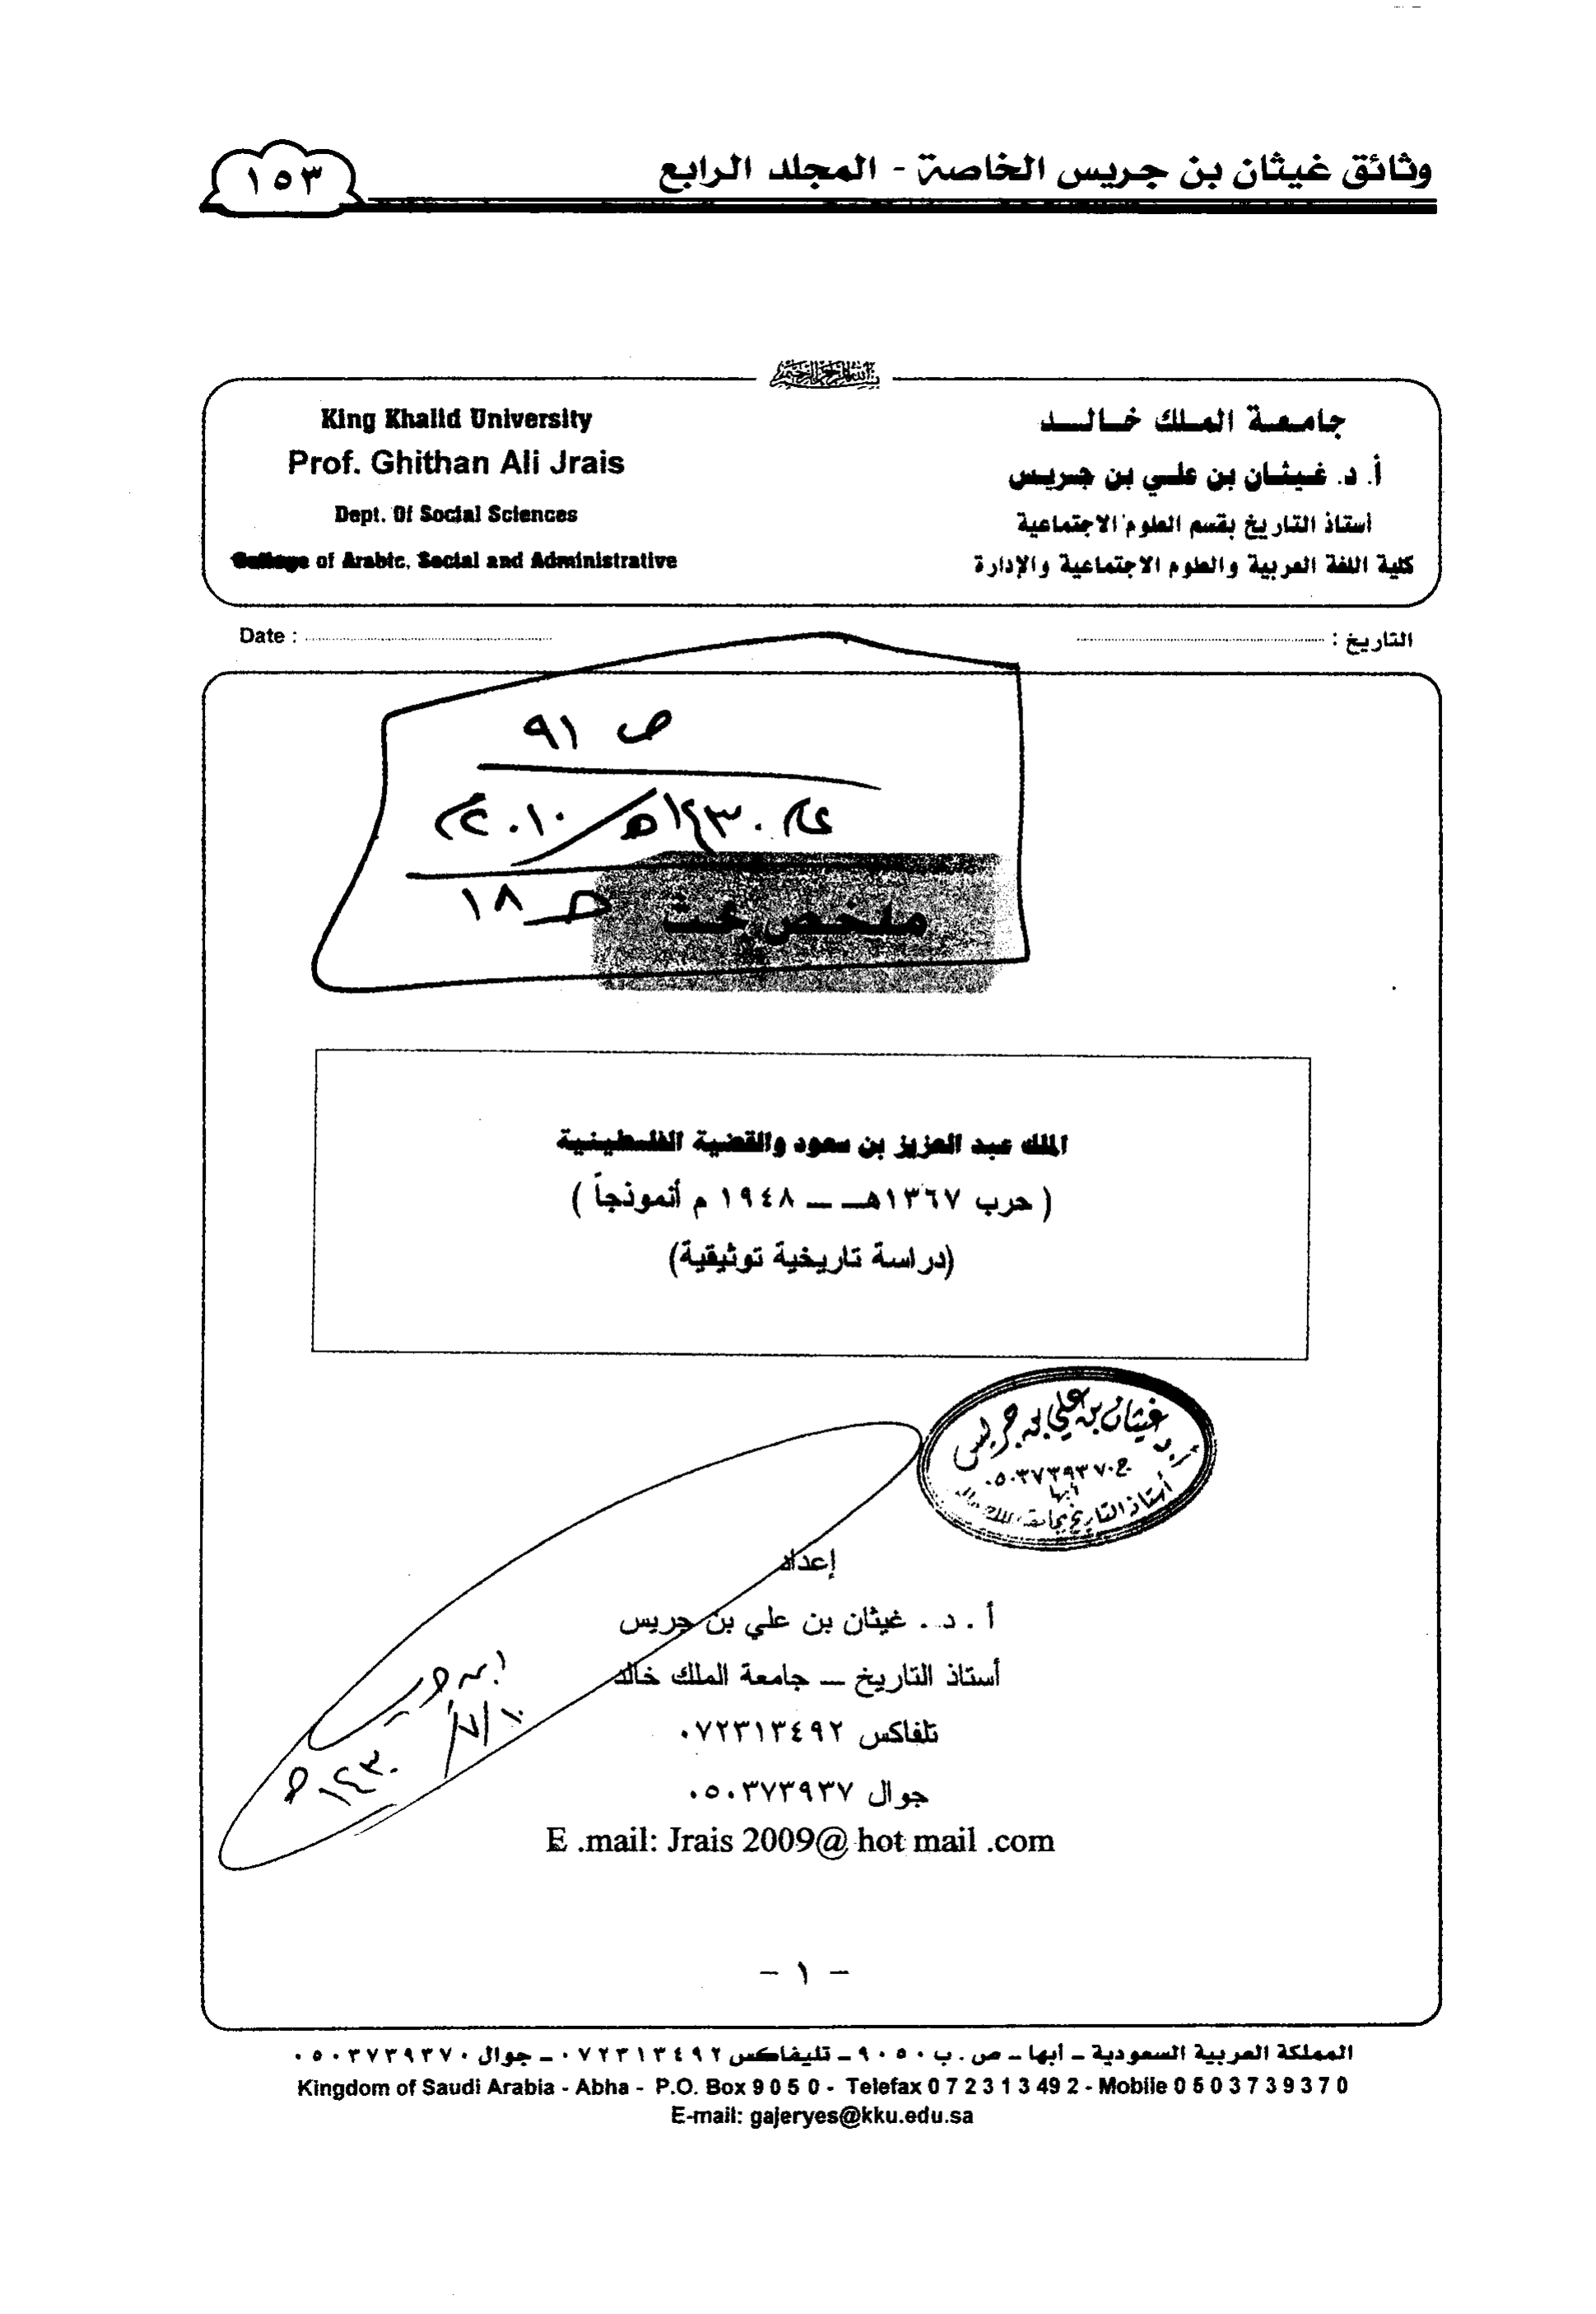 وثائق غيثان بن جريس الخاصة - المجلد الرابع
١٥٣
بسم الله الرحمن الرحيم
جامعة الملك خالد
أ. د. غيثان بن علي بن جريس
أستاذ التاريخ بقسم العلوم الاجتماعية
كلية اللغة العربية والعلوم الاجتماعية والإدارة
King Khalid University
Prof. Ghithan Ali Jrais
Dept. Of Social Sciences
College of Arabic, Social and Administrative
التاريخ :
Date :
ص ٩١
١٤٣٠هـ / ٢٠١٠م
ص ١٨
ملخص بحث
الملك عبد العزيز بن سعود والقضية الفلسطينية
( حرب ١٣٦٧هـ ــ ١٩٤٨ م أنموذجاً )
(دراسة تاريخية توثيقية)
أ.د غيثان بن علي بن جريس
ج.٠٥٠٣٧٣٩٣٧
أبها
أستاذ التاريخ بجامعة الملك خالد
إعداد
أ . د. . غيثان بن علي بن جريس
أستاذ التاريخ ــ جامعة الملك خالد
تلفاكس ٠٧٢٣١٣٤٩٢
جوال ٠٥٠٣٧٣٩٣٧
E .mail: Jrais 2009@ hot mail .com
ابن جريس
١٠/٧/
١٤٣٠هـ
- ١ -
المملكة العربية السعودية - أبها - ص . ب ٩٠٥٠ - تليفاكس ٠٧٢٣١٣٤٩٢ - جوال ٠٥٠٣٧٣٩٣٧٠
Kingdom of Saudi Arabia - Abha - P.O. Box 9 0 5 0 - Telefax 0 7 2 3 1 3 49 2 - Mobile 0 5 0 3 7 3 9 3 7 0
E-mail: gajeryes@kku.edu.sa